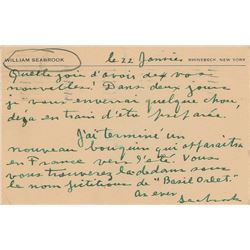 WILLIAM SEABROOK
RHINEBECK, NEW YORK
le 22 Janvier
Quelle joie d'avoir des vos
nouvelles! Dans deux jours
je vous enverrai quelque chose
déja en train d'etre préparée.
J'ai terminé un
nouveau bouquin qui apparaitra
en France vers l'été. Vous
vous trouverez la-dedans sous
le nom fictitious de "Basil Orlet."
As ever,
Seabrook